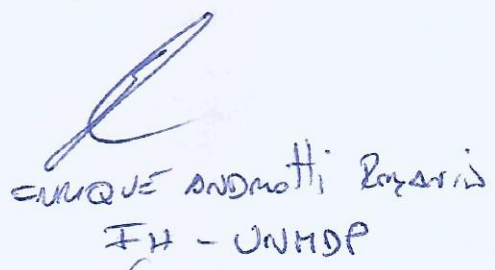 ENRIQUE ANDRIOTTI ROMANIN
FH - UNMDP